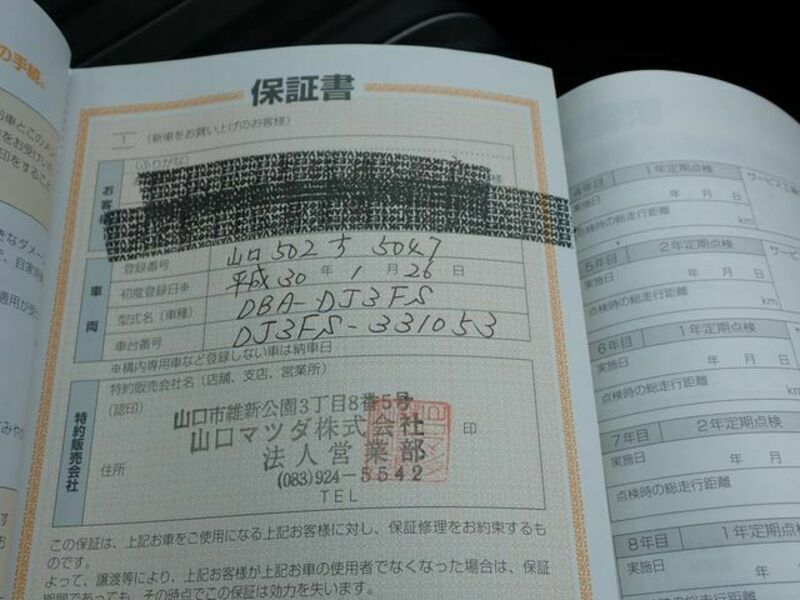 の手続。
お車とこのメ
をお受け
印をすること
きなダメー
保証書
(新車をお買い上げのお客様)
(ふりがな)
お客様
様
車両
登録番号 山口 502 す 5047
初度登録日※ 平成30年 1月 26日
型式名(車種) DBA-DJ3FS
車台番号 DJ3FS-331053
※構内専用車など登録しない車は納車日
特約販売会社
特約販売会社名(店舗、支店、営業所)
(認印)
山口市維新公園3丁目8番5号
山口マツダ株式会社
印
法人営業部
住所
(083)924-5542
TEL
この保証は、上記お車をご使用になる上記お客様に対し、保証修理をお約束するも
のです。
よって、譲渡等により、上記お客様が上記お車の使用者でなくなった場合は、保証
期間であっても、その時点でこの保証は効力を失います。
4年目 1年定期点検
実施日 年 月 日
点検時の総走行距離 km
5年目 2年定期点検
実施日 年 月 日
点検時の総走行距離 km
6年目 1年定期点検
実施日 年 月 日
点検時の総走行距離
7年目 2年定期点検
実施日 年 月
点検時の総走行距離
8年目 1年定期点検
実施日 年
点検時の総走行距離